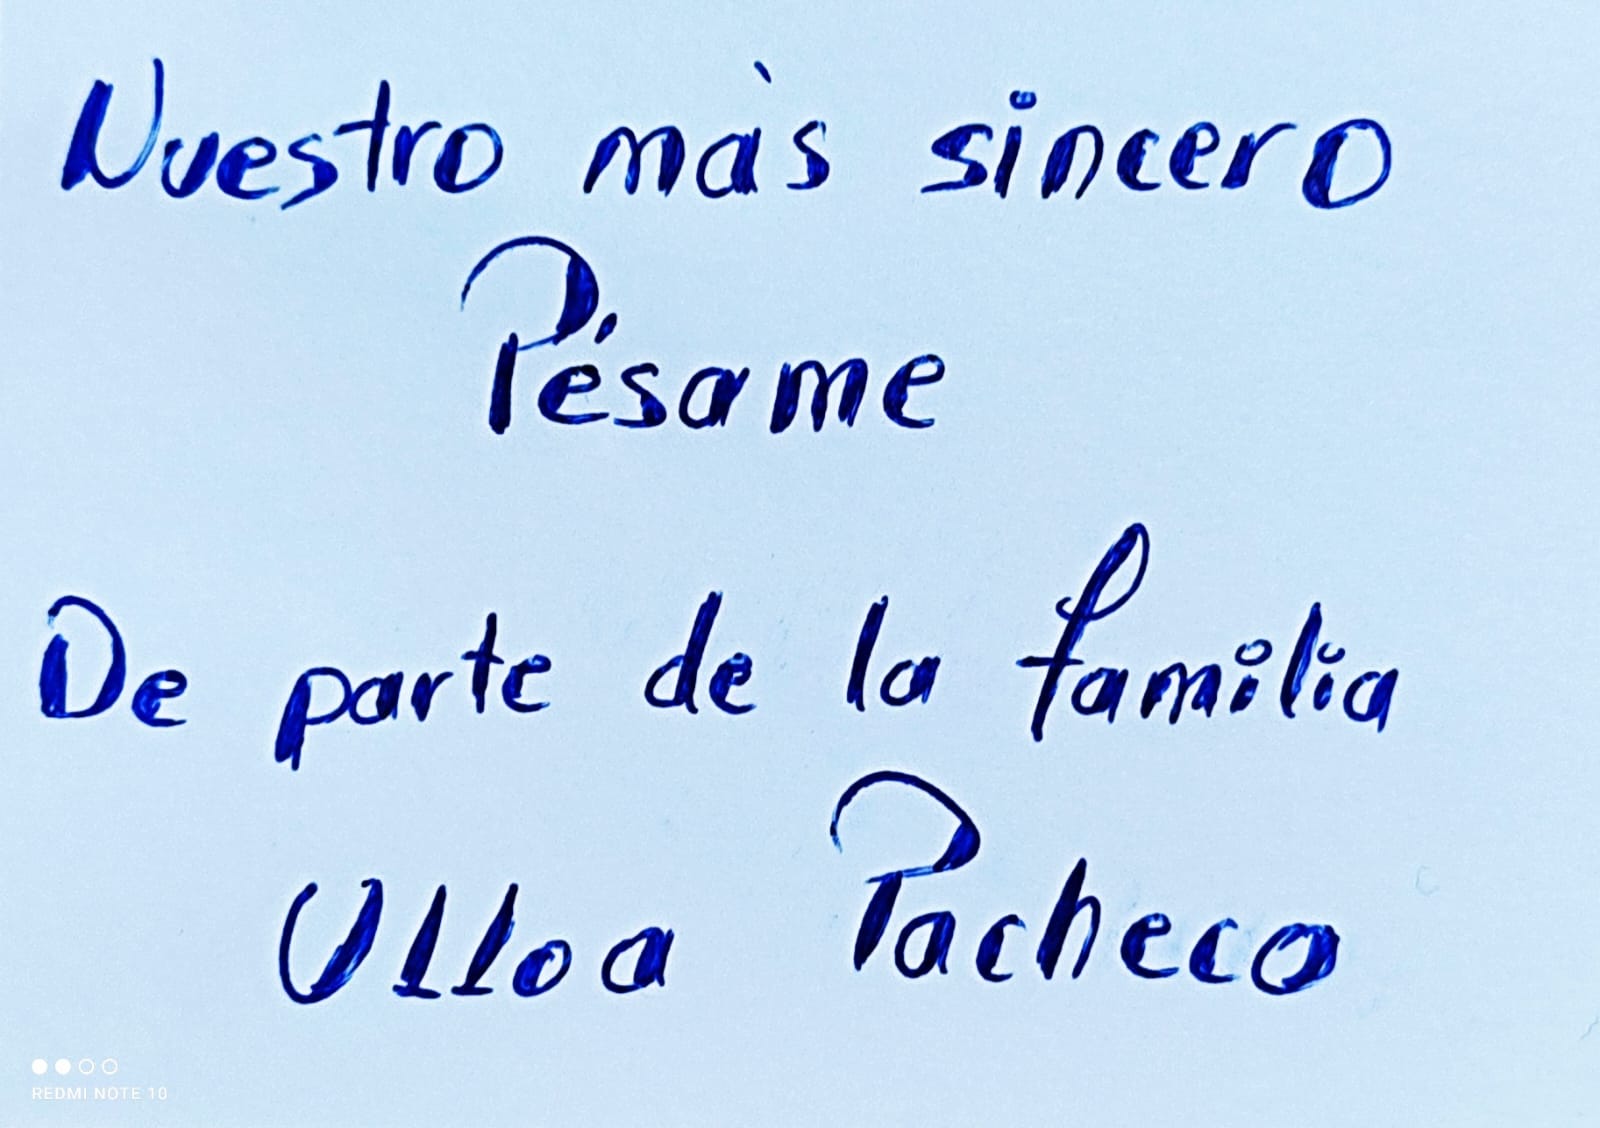 Nuestro màs sincero
Pésame
De parte de la familia
Ulloa Pacheco
REDMI NOTE 10